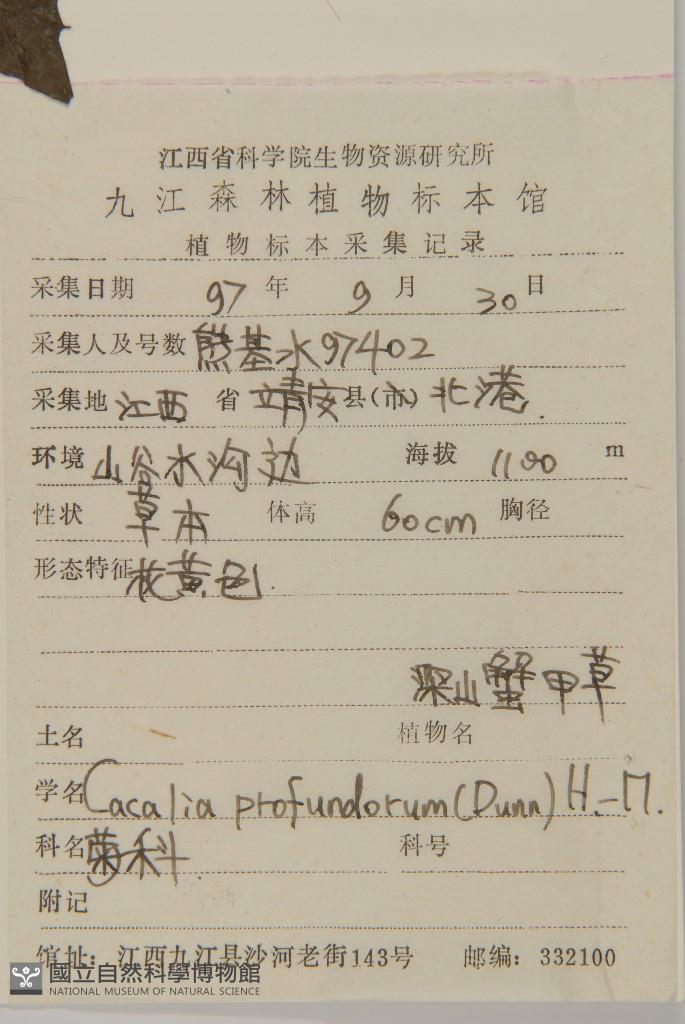 江西省科学院生物资源研究所
九江森林植物标本馆
植物标本采集记录
采集日期 97 年 9 月 30 日
采集人及号数 熊基水97402
采集地 江西 省 靖安 县(市) 北港.
环境 山谷水沟边 海拔 1100 m
性状 草本 体高 60cm 胸径
形态特征 花黄色.
深山蟹甲草
土名 植物名
学名 Cacalia profundorum (Dunn) H.-M.
科名 菊科 科号
附记
馆址：江西九江县沙河老街143号 邮编：332100
國立自然科學博物館
NATIONAL MUSEUM OF NATURAL SCIENCE